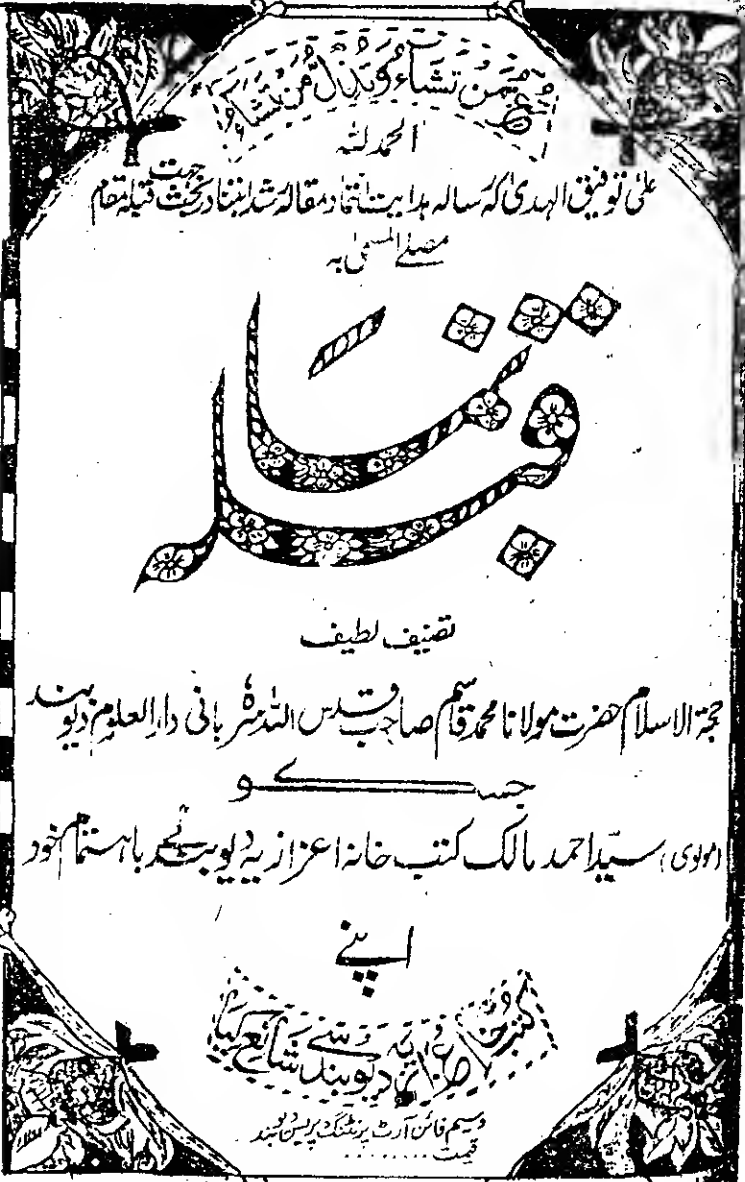 تعز من تشاء و تذل من تشاء
الحمد للہ
علیٰ توفیق الہدیٰ کہ رسالہ ہدایت انتما د مقالہ رشد ابتنا در بحث جہت قبلہ مقام
مصلے المسمیٰ بہ
قبلہ نما
تصنیف لطیف
حجۃ الاسلام حضرت مولانا محمد قاسم صاحب قدس اللہ سرہٗ بانی دارالعلوم دیوبند
جس کو
(مولوی) سید احمد مالک کتب خانہ اعزازیہ دیوبند نے باہتمام خود
اپنے
کتب خانہ اعزازیہ دیوبند سے شائع کیا
وسیم فائن آرٹ پرنٹنگ پریس دیوبند
قیمت ........